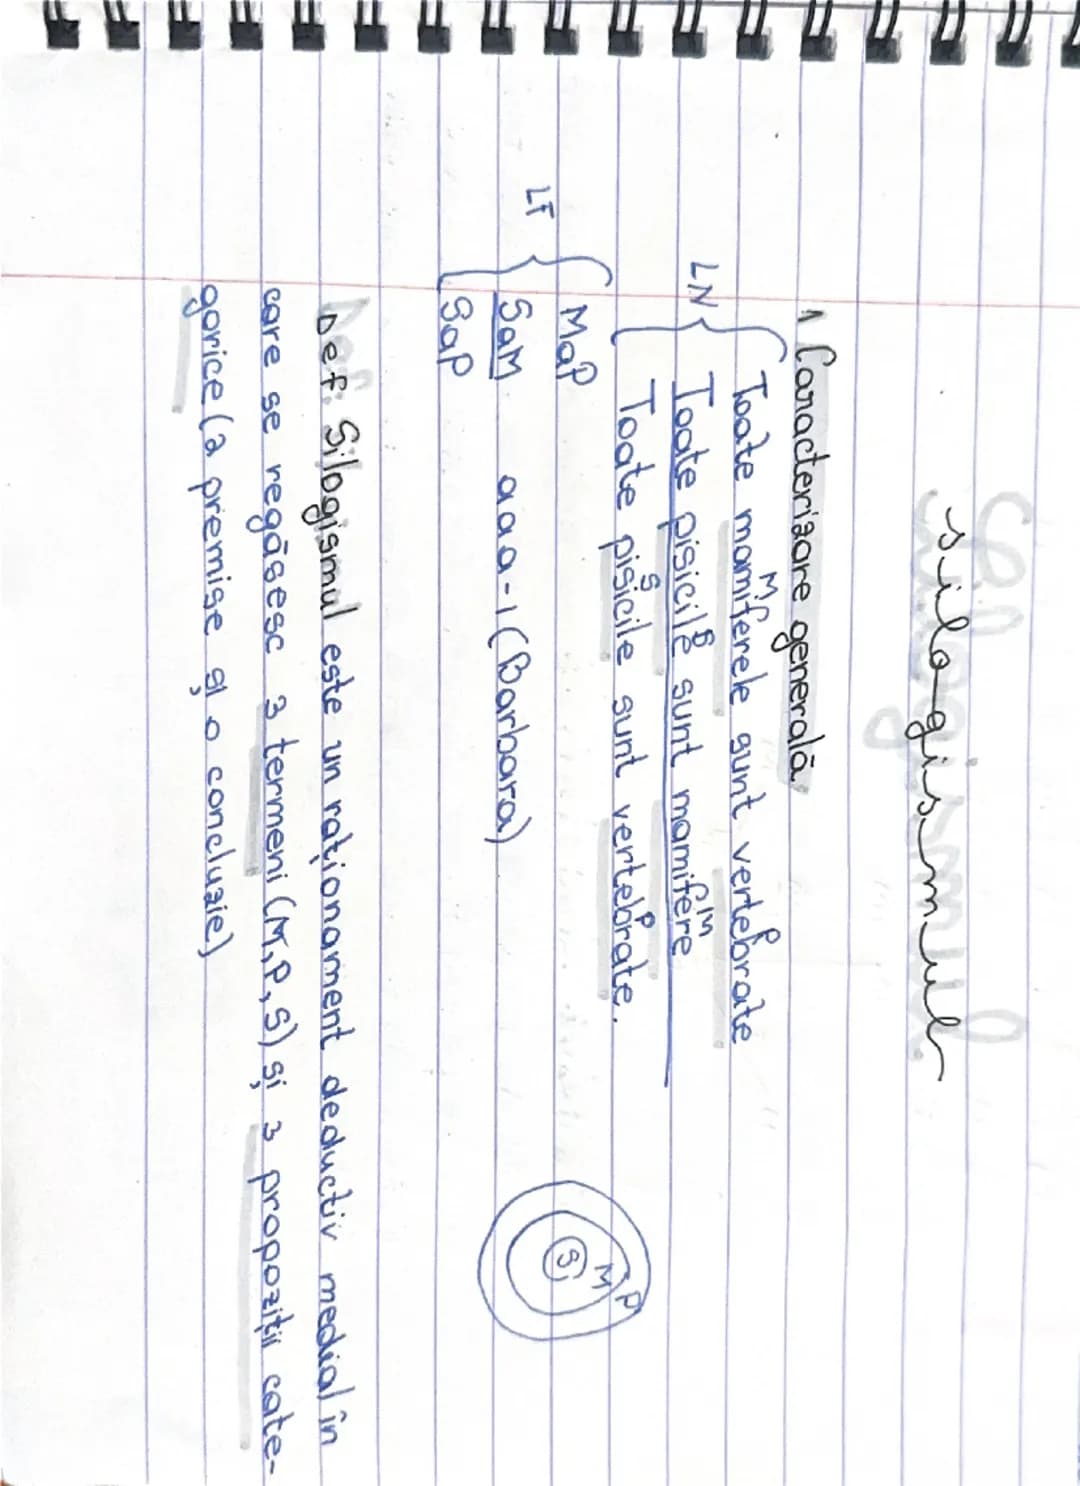 Silogismul
1 Caracterizare generală.
M P
LN { Toate mamiferele sunt vertebrate
S M
Toate pisicile sunt mamifere
S P
Toate pisicile sunt vertebrate.
LF { MaP
SaM aaa-1 (Barbara)
SaP
S M P
Def: Silogismul este un raționament deductiv medial în
care se regăsesc 3 termeni (M, P, S) și 3 propoziții cate-
gorice (2 premise și o concluzie)